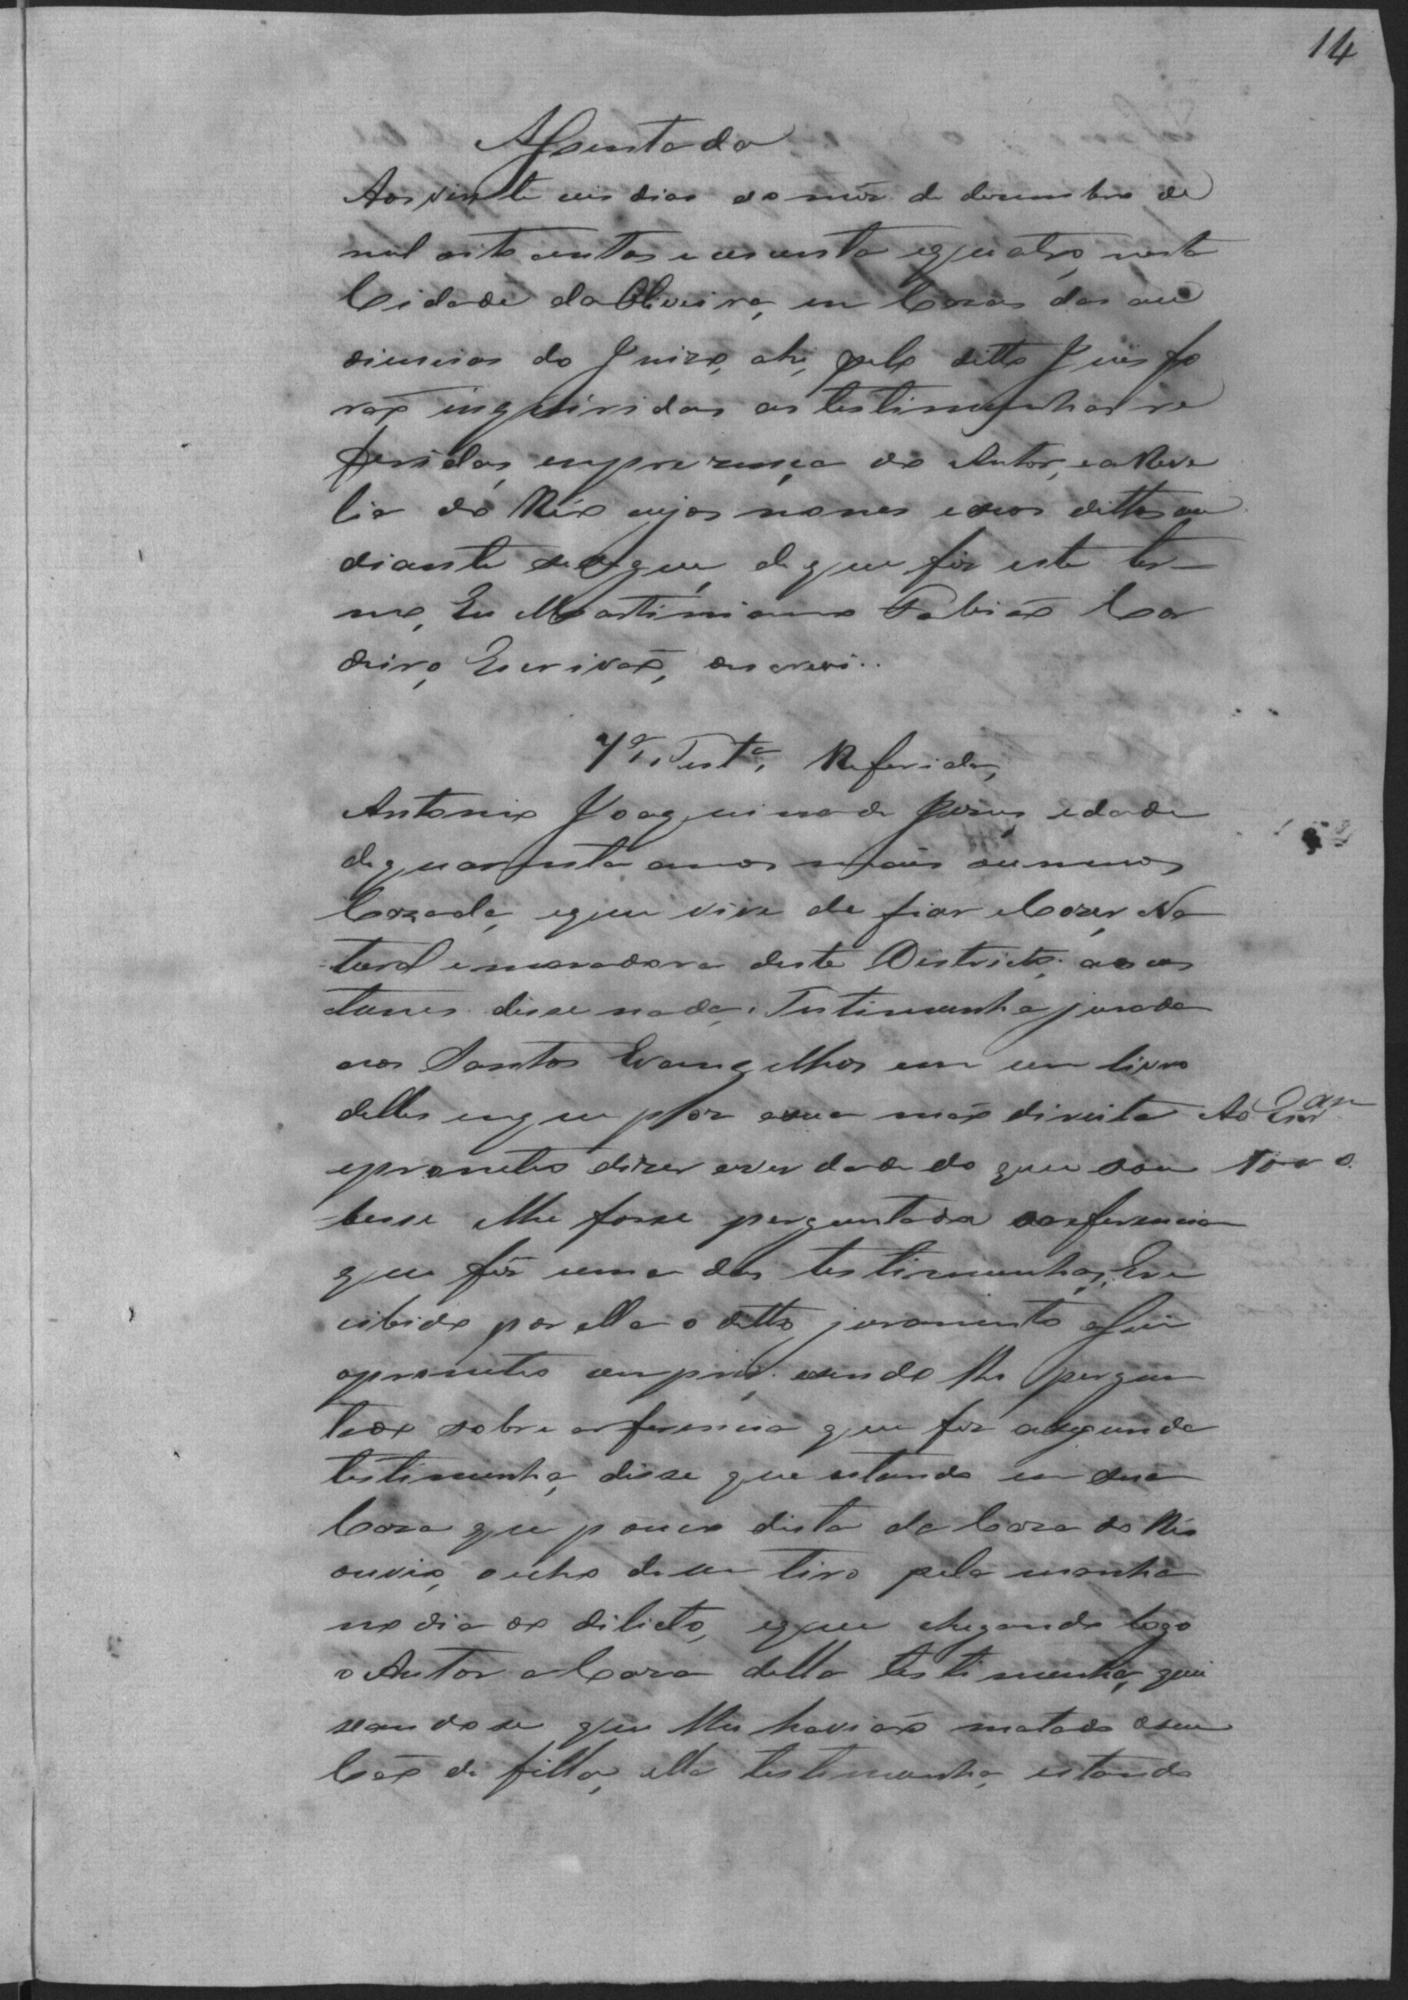 14
Assentada
Aos vinte seis dias do mes de desembro de
mil oito centos e cecenta e quatro, nesta
Cidade da Oliveira, em Cazas das au
diencias do Juizo, ahi, pelo ditto Juis fo
rão inqüiridas as testimunhas re
feridas, em prezença do Autor, e a Reve
lia do Réo cujos nomes e seos dittos au
diante se segue, de que fis este ter-
mo, Eu Martiniano Fabião Cor
deiro, Escrivão, oescrevi..
1ª Testª, Referida,
Antonia Joaquina de Jesus, edade
de quarenta annos mais ou menos
Cazada, e que vive de fiar e Cozer, Na
tural e moradora deste Districto, aos cos
tumes disse nada. Testimunha jurada
aos Santos Evangelhos em um livro
delles em que pos a sua mão direita
e prometeo dizer a verdade do que sou
besse e lhe fosse perguntado
que fes uma das testimunhas, E re
cibido por ella o ditto juramento assim
o prometeo cumprir, e sendo lhe pergun
tado sobre a referencia que fes a segunda
testimunha, disse que estando em sua
Caza que pouco dista da Caza do Réo
ouvio, o echo de um tiro pela manhã
no dia do dilicto, e que chegando logo
o Autor a Caza della testimunha, quei
xando se que lhe havião matado o seu
Cão de filla, ella testimunha, estando